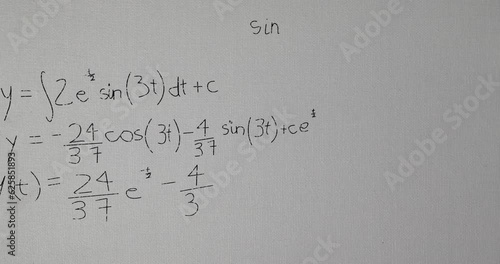 sin
y = ∫ 2e^{-t/2} sin(3t) dt + c
y = -24/37 cos(3t) - 4/37 sin(3t) + ce^{t/2}
(t) = 24/37 e^{-t/2} - 4/3
Adobe Stock | #625851899